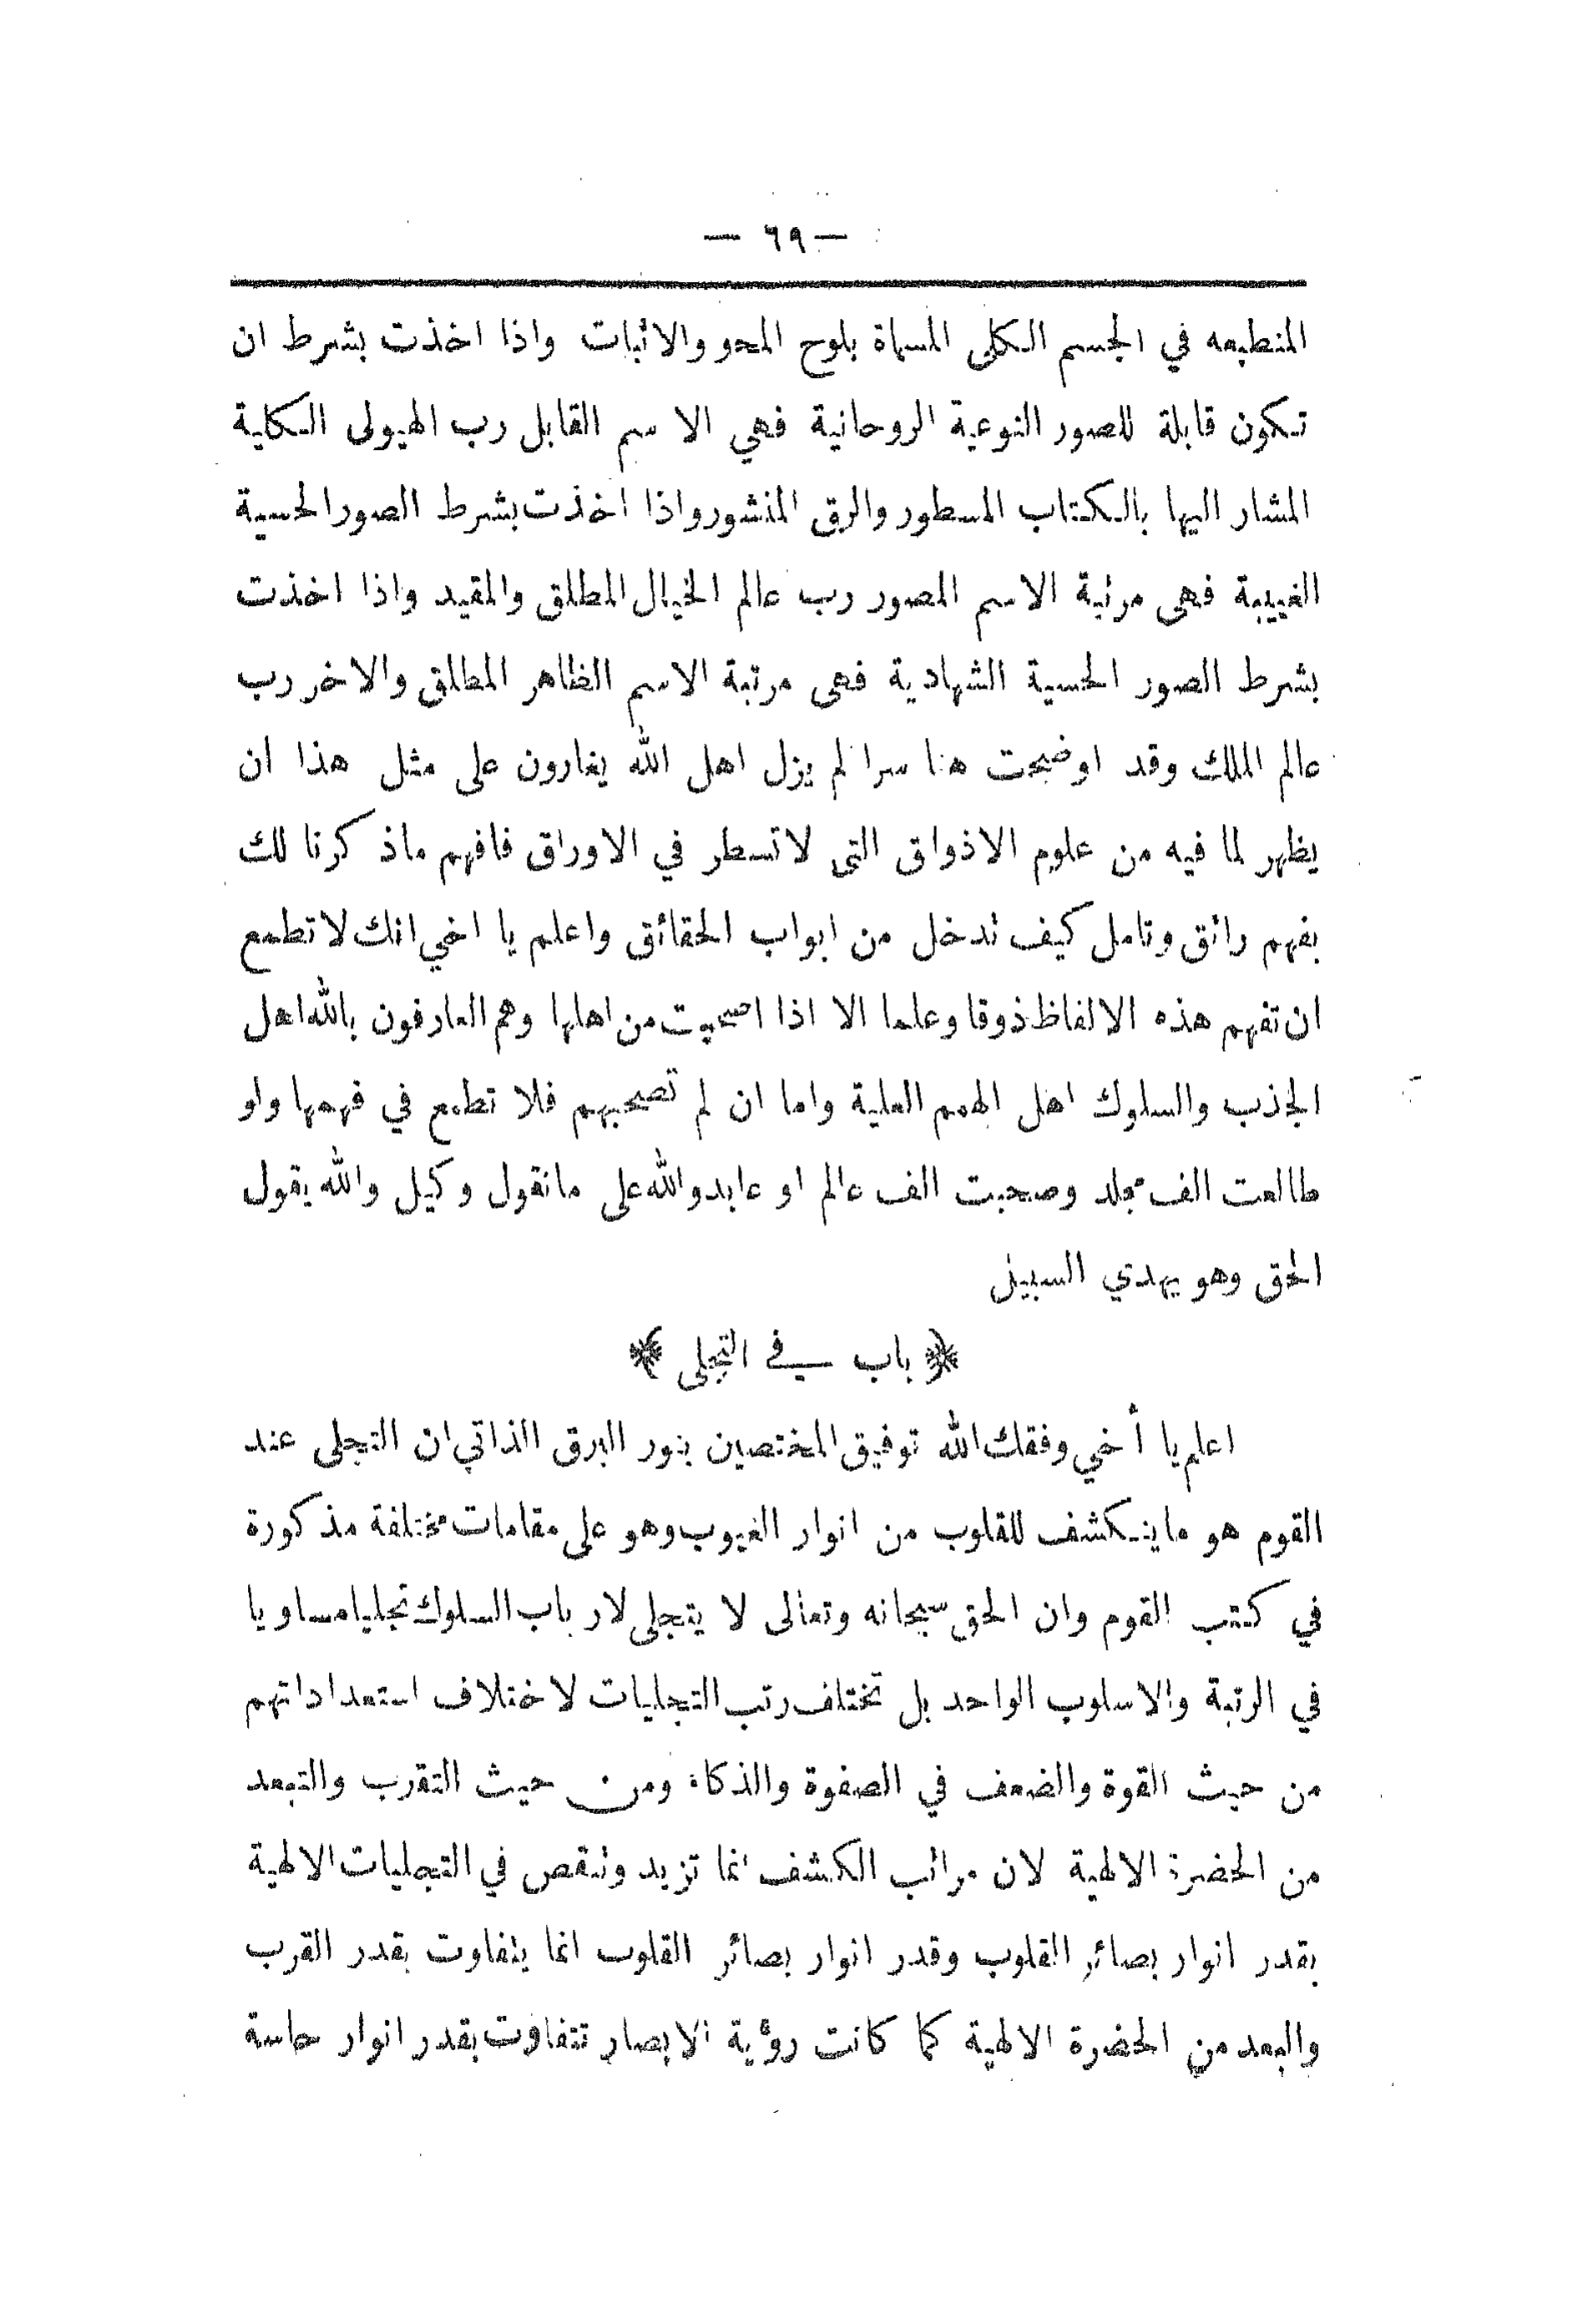 — ٦٩ —
المنطبعه في الجسم الكلى المسماة بلوح المحو والاثبات واذا اخذت بشرط ان
تكون قابلة للصور النوعية الروحانية فهي الاسم القابل رب الهيولى الكلية
المشار اليها بالكتاب المسطور والرق المنشور واذا اخذت بشرط الصور الحسية
الغيبية فهى مرتبة الاسم المصور رب عالم الخيال المطلق والمقيد واذا اخذت
بشرط الصور الحسية الشهادية فهى مرتبة الاسم الظاهر المطلق والاخر رب
عالم الملك وقد اوضحت هنا سرا لم يزل اهل الله يغارون على مثل هذا ان
يظهر لما فيه من علوم الاذواق التى لا تسطر في الاوراق فافهم ماذكرنا لك
بفهم رائق وتامل كيف تدخل من ابواب الحقائق واعلم يا اخي انك لا تطمع
ان تفهم هذه الالفاظ ذوقا وعلما الا اذا اصحبت من اهلها وهم العارفون بالله اهل
الجذب والسلوك اهل الهمم العلية واما ان لم تصحبهم فلا تطمع في فهمها ولو
طالعت الف مجلد وصحبت الف عالم او عابد والله على مانقول وكيل والله يقول
الحق وهو يهدي السبيل
﴿ باب في التجلى ﴾
اعلم يا أخي وفقك الله توفيق المختصين بنور البرق الذاتي ان التجلى عند
القوم هو ماينكشف للقلوب من انوار الغيوب وهو على مقامات مختلفة مذكورة
في كتب القوم وان الحق سبحانه وتعالى لا يتجلى لارباب السلوك تجليا مساويا
في الرتبة والاسلوب الواحد بل تختلف رتب التجليات لاختلاف استعداداتهم
من حيث القوة والضعف في الصفوة والذكاء ومن حيث التقرب والتبعد
من الحضرة الالهية لان مراتب الكشف انما تزيد وتنقص في التجليات الالهية
بقدر انوار بصائر القلوب وقدر انوار بصائر القلوب انما يتفاوت بقدر القرب
والبعد من الحضرة الالهية كما كانت رؤية الابصار تتفاوت بقدر انوار حاسة